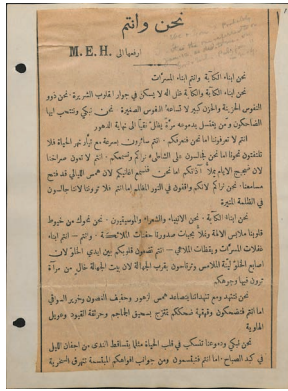 نحن وانتم
ارفعها الى M. E. H.
نحن ابناء الكآبة وانتم ابناء المسرّات
نحن ابناء الكآبة والكآبة ظل اله لا يسكن في جوار القلوب الشريرة. نحن ذوو
النفوس الحزينة والحزن كبير لا تسعهُ النفوس الصغيرة. نحن نبكي وننتحب ايها
الضاحكون ومن يغتسل بدموعه مرّة يظلّ نقيّاً الى نهاية الدهور
انتم لا تعرفوننا اما نحن فنعرفكم. انتم سائرون بسرعة مع تيّار نهر الحياة فلا
تلتفتون نحونا اما نحن فجالسون على الشاطئ نراكم ونسمعكم. انتم لا تعون صراخنا
لان ضجيج الايام يملأ آذانكم اما نحن فنسمع اغانيكم لان همس الليالي قد فتح
مسامعنا. نحن نراكم لانكم واقفون في النور المظلم اما انتم فلا تروننا لاننا جالسون
في الظلمة المنيرة
نحن ابناء الكآبة. نحن الانبياء والشعراء والموسيقيون. نحن نحوك من خيوط
قلوبنا ملابس الآلهة ونملأ بحبات صدورنا حفنات الملائكة. وانتم – انتم ابناء
غفلات المسرّات ويقظات الملاهي – انتم تضعون قلوبكم بين ايدي الخلوّ لان
اصابع الخلوّ ليّنة الملامس وترتاحون بقرب الجهالة لان بيت الجهالة خالٍ من مرآة
ترون فيها وجوهكم
نحن نتنهد ومع تنهداتنا يتصاعد همس الزهور وحفيف الغصون وخرير السواقي
اما انتم فتضحكون وقهقهة ضحككم تمتزج بسحيق الجماجم وحرتقة القيود وعويل
الهاوية
نحن نبكي ودموعنا تنسكب في قلب الحياة مثلما يتساقط الندى من اجفان الليل
في كبد الصباح. اما انتم فتبتسمون ومن جوانب افواهكم المبتسمة تنهرق السخرية